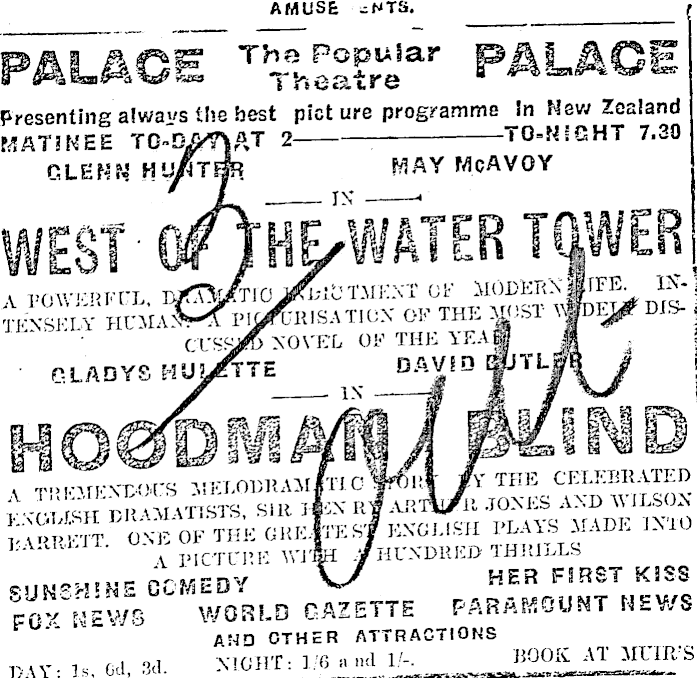 AMUSE ENTS.
PALACE The Popular Theatre PALACE
Presenting always the best picture programme In New Zealand
MATINEE TO-DAY AT 2 — TO-NIGHT 7.30
GLENN HUNTER MAY McAVOY
— IN —
WEST OF THE WATER TOWER
A POWERFUL, DRAMATIC INDICTMENT OF MODERN LIFE. IN-
TENSELY HUMAN. A PICTURISATION OF THE MOST WIDELY DIS-
CUSSED NOVEL OF THE YEAR
GLADYS HULETTE DAVID BUTLER
— IN —
HOODMAN BLIND
A TREMENDOUS MELODRAMATIC STORY BY THE CELEBRATED
ENGLISH DRAMATISTS, SIR HENRY ARTHUR JONES AND WILSON
BARRETT. ONE OF THE GREATEST ENGLISH PLAYS MADE INTO
A PICTURE WITH A HUNDRED THRILLS
SUNSHINE COMEDY HER FIRST KISS
FOX NEWS WORLD GAZETTE PARAMOUNT NEWS
AND OTHER ATTRACTIONS
DAY: 1s, 6d, 3d. NIGHT: 1/6 and 1/-. BOOK AT MUIR'S
3/